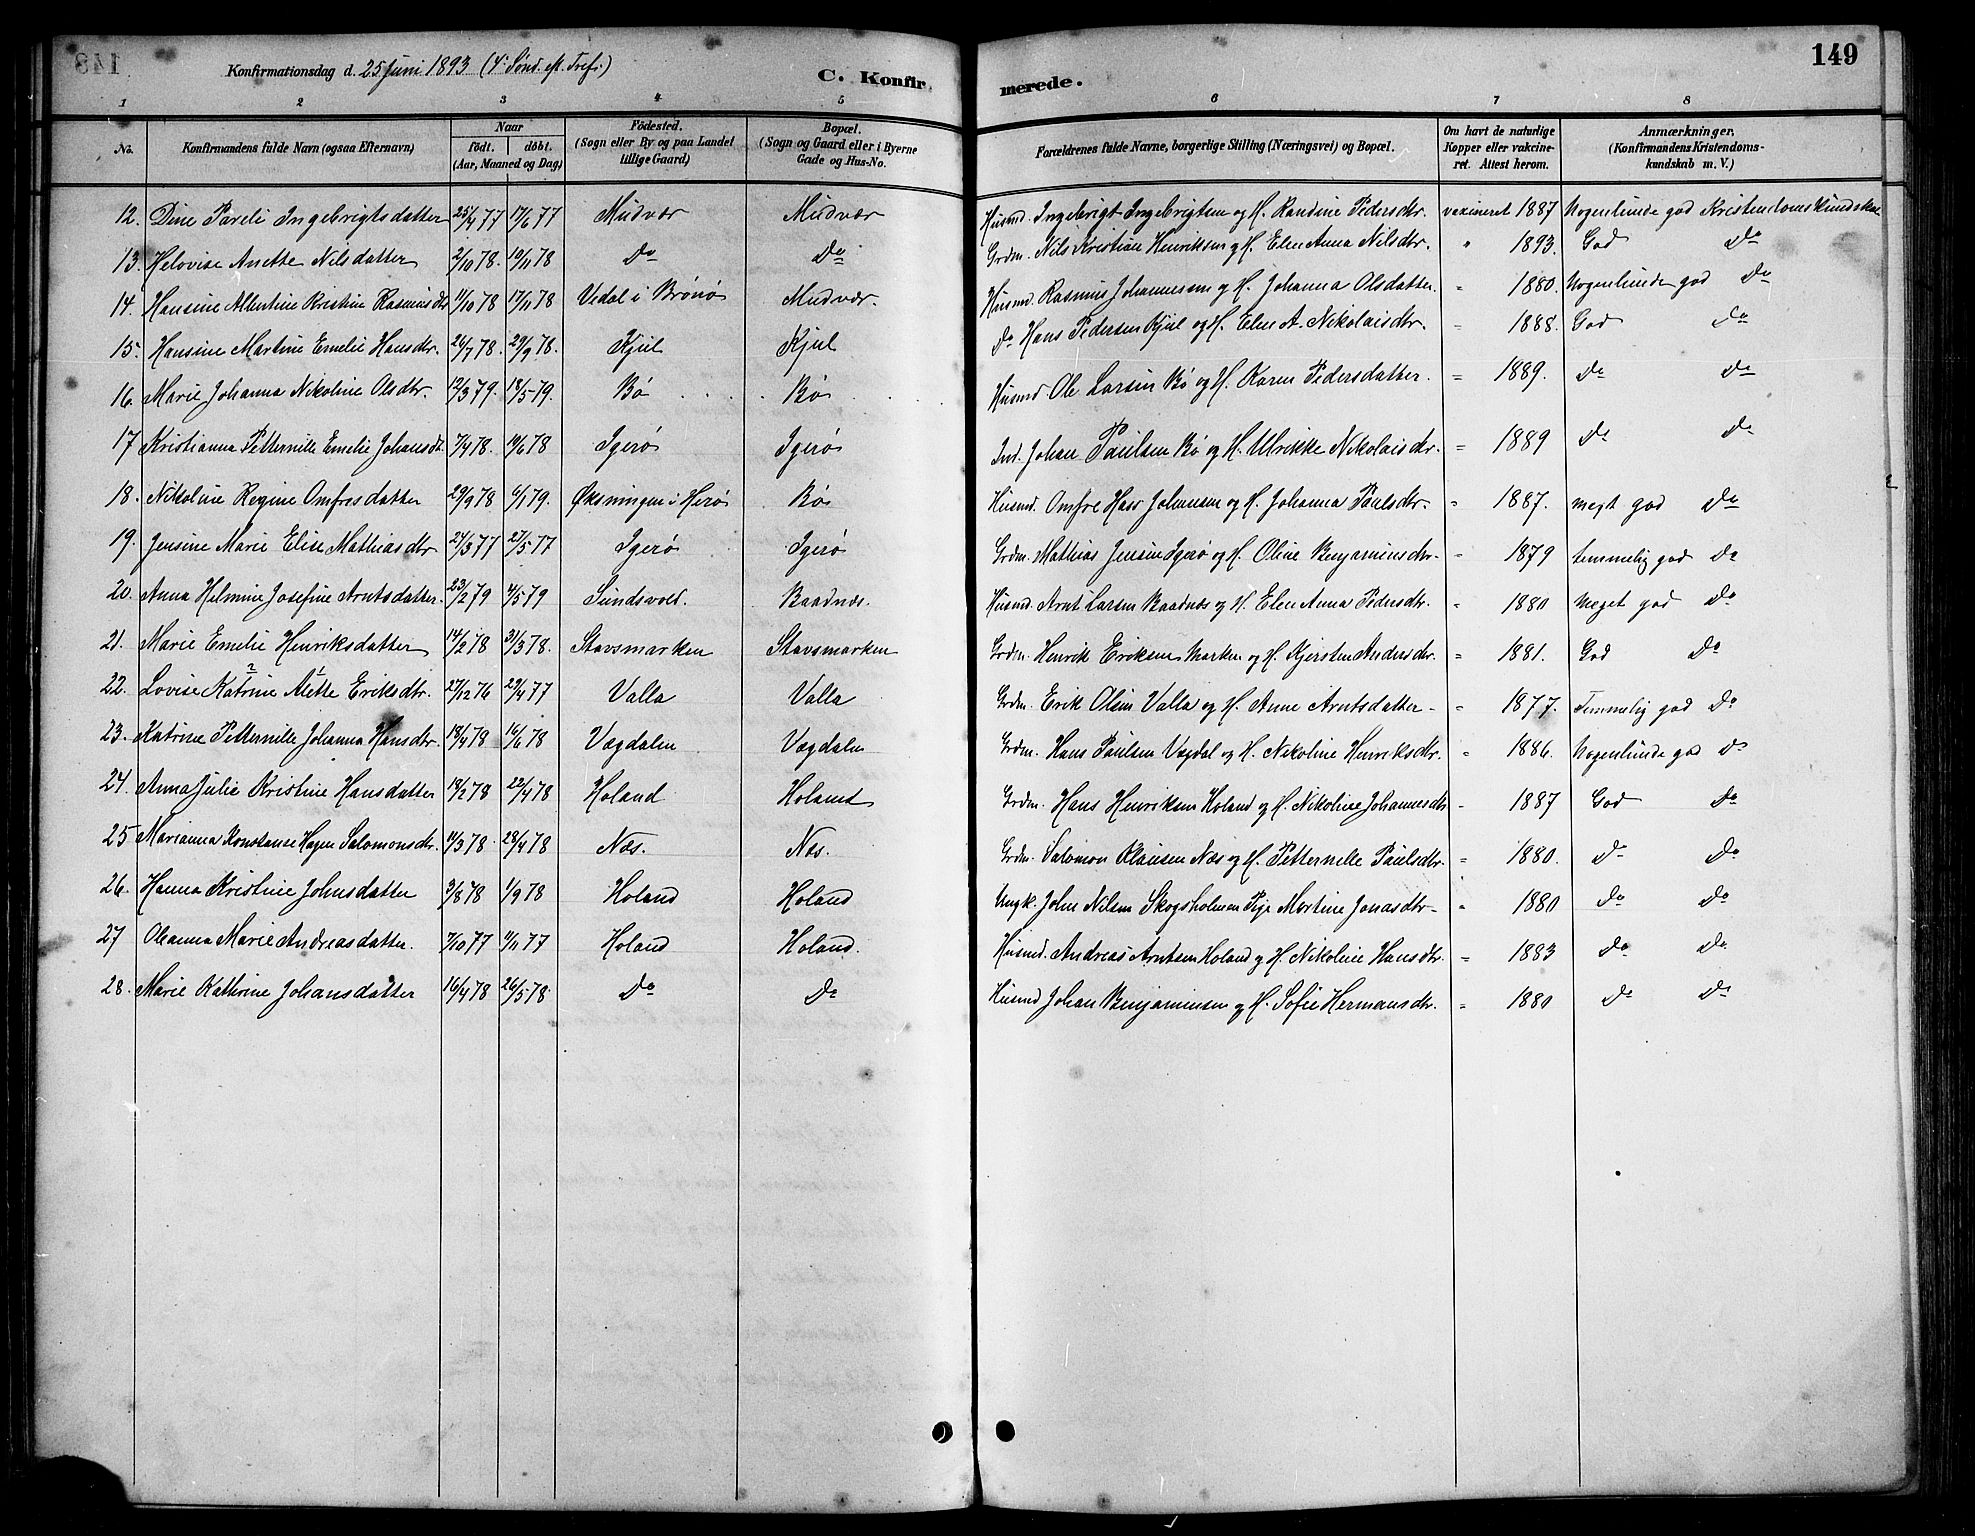 Konfirmationsdag d. 25 Juni 1893 (4. Sønd. eft. Tref.)
C. Konfirmerede.
149
1 2 3 4 5 6 7 8
No. | Konfirmandens fulde Navn (ogsaa Efternavn) | Naar født. døbt. (Aar, Maaned og Dag) | Fødested. (Sogn eller By og paa Landet tillige Gaard) | Bopæl. (Sogn og Gaard eller i Byerne Gade og Hus-No. | Forældrenes fulde Navne, borgerlige Stilling (Næringsvei) og Bopæl. | Om havt de naturlige Kopper eller vakcineret. Attest herom. | Anmærkninger. (Konfirmandens Kristendomskundskab m. V.)
12. Dine Pareli Ingebrigtsdatter 25/4 77 17/6 77 Mudvær Mudvær Husmd. Ingebrigt Ingebrigtsen og H. Randine Pedersdtr. vaxineret 1887 Nogenlunde god Kristendomskundskab
13. Helovise Anette Nilsdatter 2/10 78. 10/11 78 Do Do Grdm. Nils Kristian Henriksen og H. Elen Anna Nilsdtr. " 1893. God Do
14. Hansine Albertine Kristine Rasmusdtr 11/10 78 17/11 78 Vedal i Brønø Mudvær. Husmd. Rasmus Johannesen og H. Johanna Olsdatter. " 1880. Nogenlunde god Do
15. Hansine Martine Emelie Hansdtr. 24/7 78. 29/9 78. Kjul Kjul Do Hans Pedersen Kjul og H. Elen A. Nikolaisdtr. " 1888. God Do
16. Marie Johanna Nikoline Olsdtr. 12/3 79. 18/5 79. Bø Bø Husmd. Ole Larsen Bø og H. Karen Pedersdatter. " 1889. Do Do
17 Kristianna Petternille Emelie Johansdt. 7/4 78. 10/6 78 Igerø Igerø Ind. Johan Paulsen Bø og H. Ulrikke Nikolaisdtr. " 1889 Do Do
18. Nikoline Regine Omfresdatter 29/9 78 6/1 79. Øksningen i Herø Bø Husmd. Omfre Hass Johansen og H. Johanna Paulsdtr. " 1887. megt god Do
19. Jensine Marie Elise Mathiasdtr 24/3 77 27/5 77 Igerø Igerø Grdm. Mathias Jensen Igerø og H. Oline Benjaminsdtr. " 1879 temmelig god Do
20. Anna Helmine Josefine Arntsdatter. 23/2 79 4/5 79 Sundsvold. Baadnæs. Husmd. Arnt Larsen Baadnæs og H. Elen Anna Pedersdtr. " 1880 Meget god Do
21. Marie Emelie Henriksdatter 14/2 78 31/3 78. Stavsmarken Stavsmarken Grdm. Henrik Eriksen Marken og H. Kjersten Andersdtr. " 1881. God Do
22. Lovise Katrine Alette Eriksdtr. 27/12 76 29/4 77 Valla Valla Grdm. Erik Olsen Valla og H. Anne Arntsdatter " 1877. Temmelig god Do
23. Katrine Petternille Johanna Hansdtr. 18/4 78 16/6 78 Vægdalen Vægdalen Grdm. Hans Paulsen Vægdal og H. Nikoline Henriksdtr. " 1886. Nogenlunde god Do
24. Anna Julie Kristine Hansdatter 19/2 78 22/4 78 Holand Holand Grdm. Hans Henriksen Holand og H. Nikoline Johannesdtr " 1887 God Do
25 Marianna Konstance Hagen Salomonsdtr. 14/3 78 28/4 78 Næs. Næs. Grdm. Salomon Olausen Næs og H. Petternelle Paulsdtr. " 1880. Do Do
26. Hanna Kristine Johnsdatter 3/8 78 1/9 78 Holand Holand Ungk. John Nilsen Skogsholmen Pige Martine Jonasdtr " 1880 Do Do
27 Oleanna Marie Andreasdatter. 7/10 77 4/11 77 Holand Holand. Husmd. Andreas Arntsen Holand og H. Nikoline Hansdtr. " 1883 Do Do
28. Marie Kathrine Johansdatter 16/4 78 26/5 78 Do Do Husmd Johan Benjaminsen og H. Sofie Hermansdtr. " 1880 Do Do